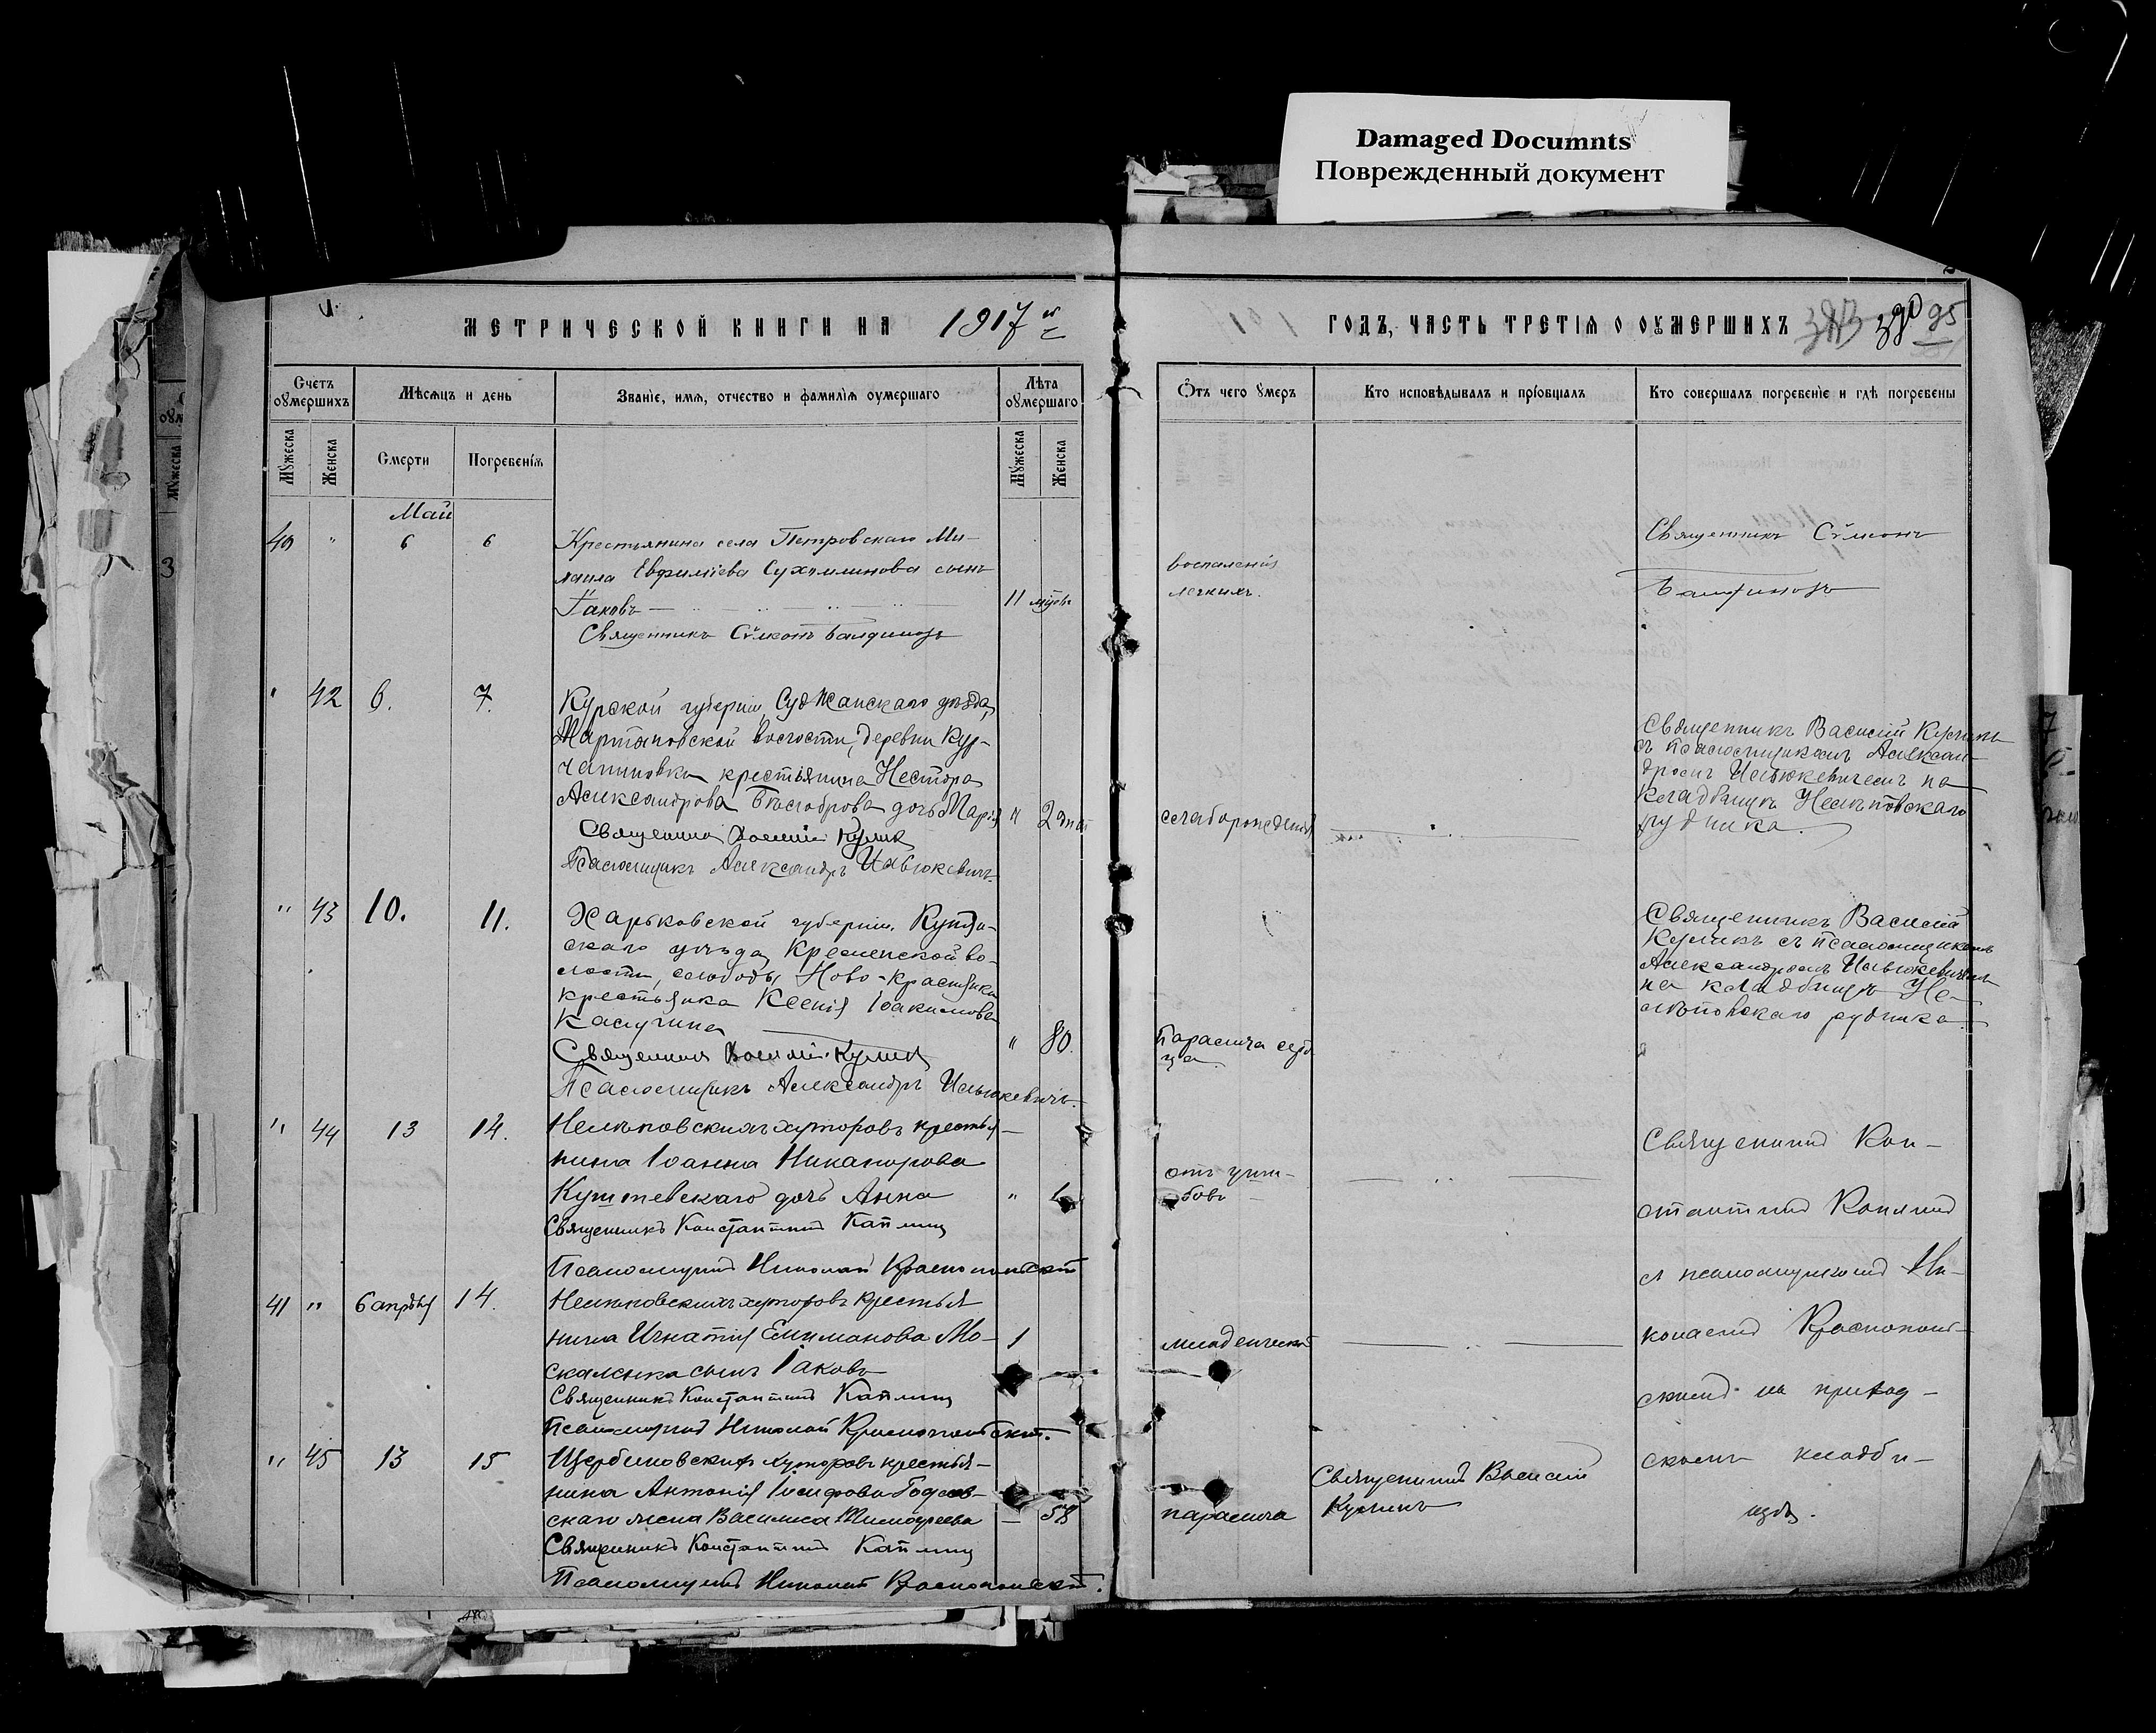 Damaged Documnts
Поврежденный документ
МЕТРИЧЕСКОЙ КНИГИ НА 1917 г
ГОДЪ, ЧАСТЬ ТРЕТІЯ О ОУМЕРШИХЪ 390 95
Счетъ оумершихъ
Мѣсяцъ и день
Званіе, имя, отчество и фамилія оумершаго
Лѣта оумершаго
Отъ чего умеръ
Кто исповѣдывалъ и пріобщалъ
Кто совершалъ погребеніе и гдѣ погребены
Мужеска
Женска
Смерти
Погребенія
Мужеска
Женска
Май
40 " 6 6
Крестьянина села Петровскаго Ми-
хаила Евфиміева Сухомлинова сынъ
Іаковъ
11
Священникъ Сѵмеонъ
воспаленія
легкихъ.
Священникъ Сѵмеонъ
" 42 6. 7.
Курской губерніи, Суджанскаго уѣзда,
волости, деревни Кур-
крестьянина Нестора
Александрова дочь Марія
" 2
Священникъ Василій Куликъ
Псаломщикъ Александръ
слаборожденія
Священникъ Василій Куликъ
съ псаломщикомъ Алексан-
дромъ на
кладбищѣ Нелѣповскаго
рудника.
" 43 10. 11.
Харьковской губерніи, Купян-
скаго уѣзда, Кременской во-
лости, слободы Ново-Краснянки
крестьянка Ксенія Іоакимова
Калугина
" 80.
Священникъ Василій Куликъ
Псаломщикъ Александръ
паралича серд
ца
Священникъ Василій
Куликъ съ псаломщикомъ
Александромъ
на кладбищѣ Не-
лѣповскаго рудника.
" 44 13 14.
Нелѣповскихъ хуторовъ крестья-
нина Іоанна Никанорова
дочь Анна
"
Священникъ Константинъ Каплинъ
Псаломщикъ Николай Краснопольскій
отъ уши-
бовъ
Священникъ Кон-
стантинъ Каплинъ
съ псаломщикомъ Ни-
колаемъ Краснополь-
скимъ на приход-
скомъ кладби-
щѣ.
41 " 6 апрѣля 14.
Нелѣповскихъ хуторовъ крестья
нина Игнатія Мо-
скаленка сынъ Іаковъ
1
Священникъ Константинъ Каплинъ
Псаломщикъ Николай Краснопольскій.
младенческой
" 45 13 15
Щербиновскихъ хуторовъ крестья-
нина Антонія Іосифова
скаго жена Василиса Тимофеева
— 58
Священникъ Константинъ Каплинъ
Псаломщикъ Николай Краснопольскій.
паралича
Священникъ Василій
Куликъ